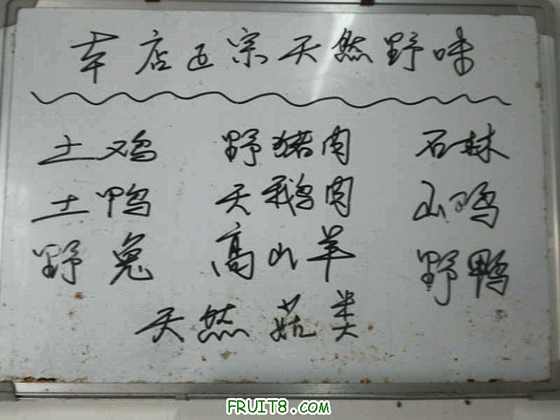 本店正宗天然野味
土鸡 野猪肉 石林
土鸭 天鹅肉 山鸡
野兔 高山羊 野鸭
天然菇类
FRUIT8.COM